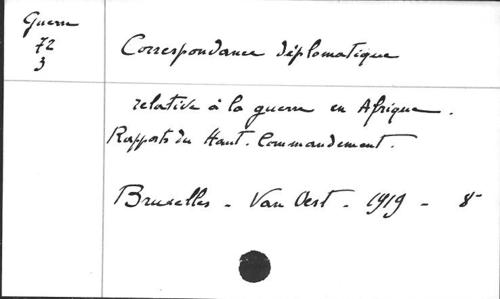 Guerre
72
3
Correspondance diplomatique
relative à la guerre en Afrique.
Rapports du Haut-Commandement.
Bruxelles - Van Oest - 1919 - 8°